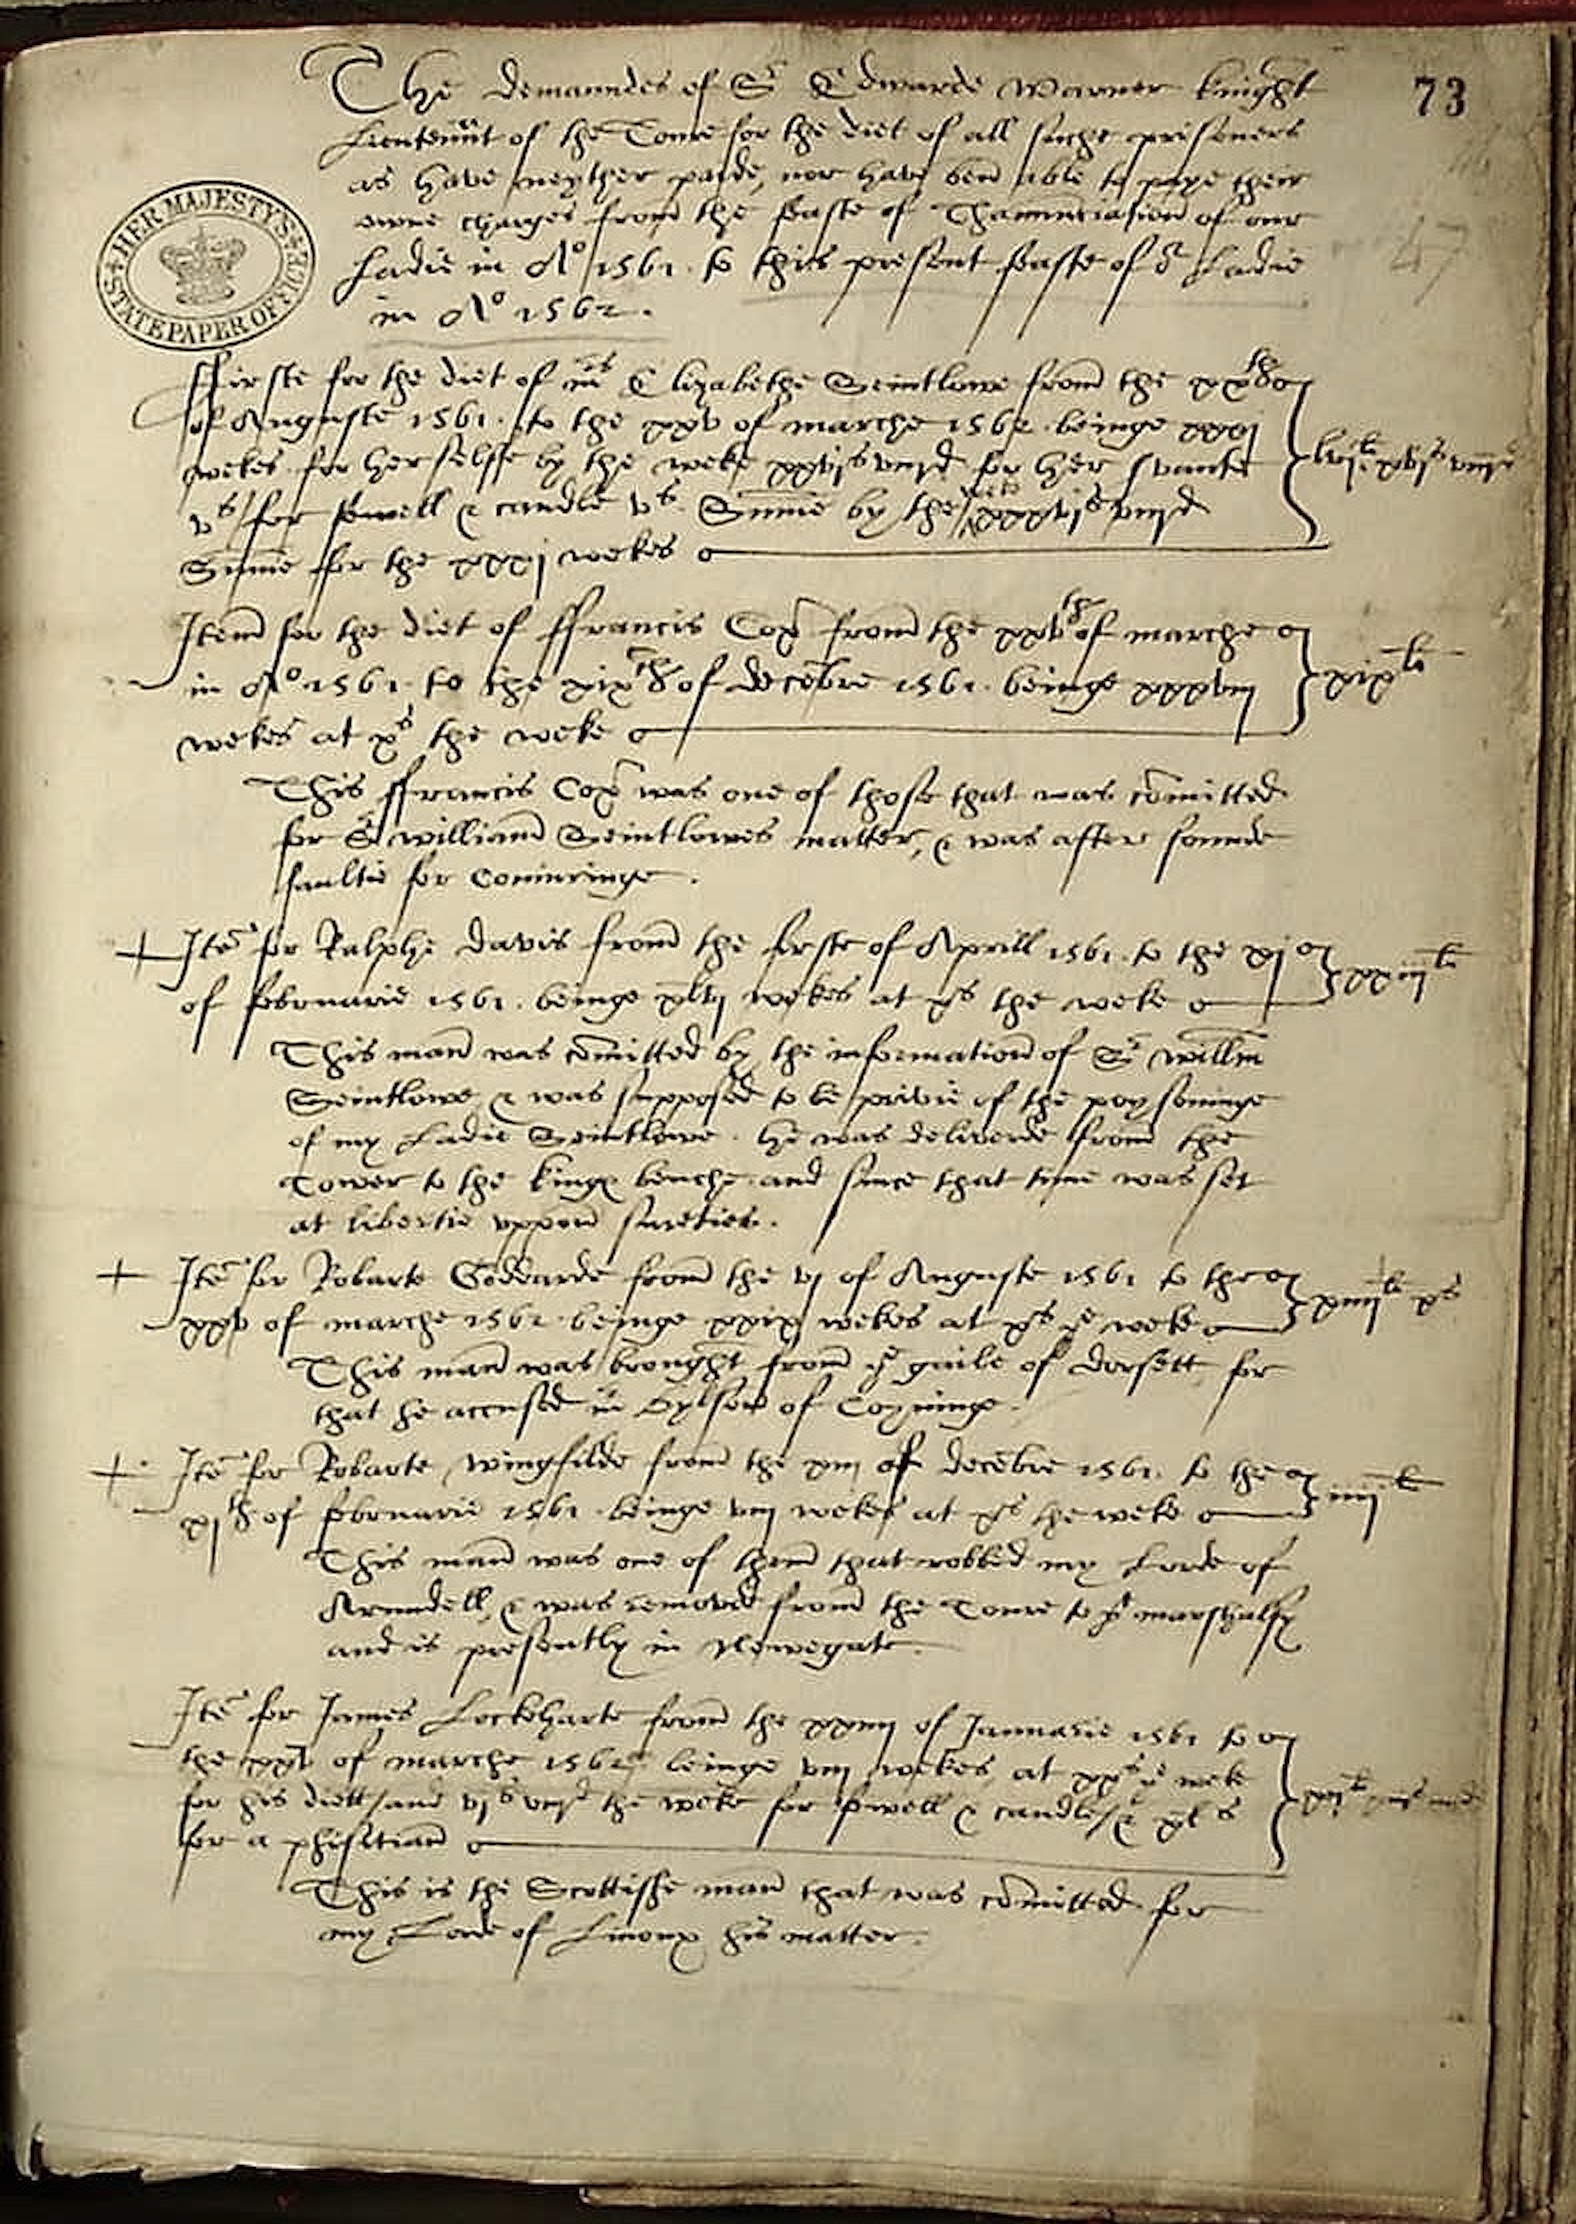 The demaundes of Sr Edwarde Warner knight
73
Lieutennt of the Towre for the diet of all suche prisoners
as have neyther paide, nor have bene able to paye their
owne charges from the feaste of Thannunciation of our
Ladie in Ao 1561 to this present feaste of or Ladie
47
in Ao 1562.
HER MAJESTY'S STATE PAPER OFFICE
ffirste for the diet of mrs Elizabethe Seintlowe from the xxth
of Auguste 1561. to the xxv of marche 1562. beinge xxxj
wekes for her selffe by the weke xxvjs viijd for her svante
lvjli xvjs viijd
vs for fewell & candle vs. Summe by the weke xxxvjs viijd
Summe for the xxxj wekes
Item for the diet of ffrancis Cox from the xxvth of marche
in Ao 1561. to the xixth of decebre 1561. beinge xxxviij
xixli
wekes at xs the weke
This ffrancis Cox was one of those that was comitted
for Sr william Seintlowes matter, & was after founde
faultie for Coniuringe.
+ Ite for Ralphe Davis from the firste of Aprill 1561. to the xj
xxiijli
of februarie 1561. beinge xlvj wekes at xs the weke
This man was comitted by the information of Sr willm
Seintlowe & was supposed to be privie of the poysoninge
of my Ladie Seintlowe. he was deliverde from the
Tower to the kings benche and since that time was set
at libertie uppon sureties.
+ Ite for Robarte Goddarde from the vj of Auguste 1561 to the
xiiijli xs
xxv of marche 1562. beinge xxix wekes at xs ye weke
This man was brought from ye gaile of dorsett for
that he accused mr of Coyninge.
+ Ite for Robarte wingfilde from the xiij of decebre 1561. to the
iiijli
xjth of februarie 1561. beinge viij wekes at xs the weke
This man was one of them that robbed my Lorde of
Arundell, & was removed from the Towre to ye marshalsy
and is presently in Newegate.
Ite for James Lockeharte from the xxiiij of Januarie 1561 to
the xxv of marche 1562 beinge viij wekes, at xxs ye weke
for his diett / and vjs viijd the weke for fewell & candle / & xls
xijli xiijs iiijd
for a phisitian
This is the Scottishe man that was comitted for
my Lorde of Linoux his matter.